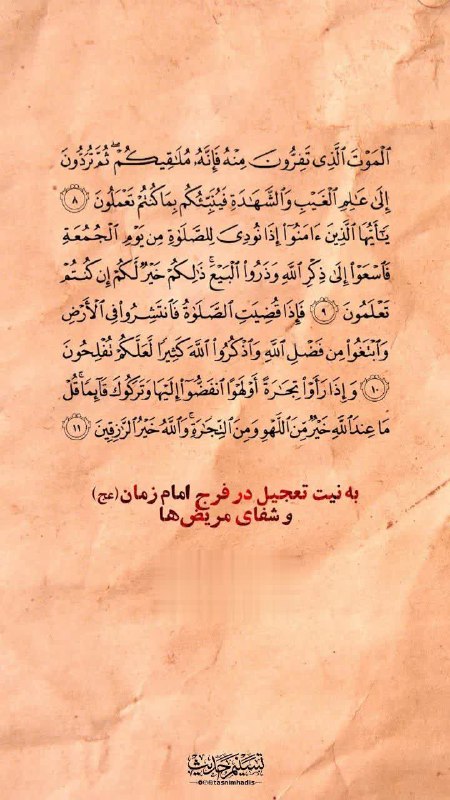 ٱلْمَوْتَ ٱلَّذِى تَفِرُّونَ مِنْهُ فَإِنَّهُۥ مُلَـٰقِيكُمْ ۖ ثُمَّ تُرَدُّونَ
إِلَىٰ عَـٰلِمِ ٱلْغَيْبِ وَٱلشَّهَـٰدَةِ فَيُنَبِّئُكُم بِمَا كُنتُمْ تَعْمَلُونَ ٨
يَـٰٓأَيُّهَا ٱلَّذِينَ ءَامَنُوٓا۟ إِذَا نُودِىَ لِلصَّلَوٰةِ مِن يَوْمِ ٱلْجُمُعَةِ
فَٱسْعَوْا۟ إِلَىٰ ذِكْرِ ٱللَّهِ وَذَرُوا۟ ٱلْبَيْعَ ۚ ذَٰلِكُمْ خَيْرٌ لَّكُمْ إِن كُنتُمْ
تَعْلَمُونَ ٩ فَإِذَا قُضِيَتِ ٱلصَّلَوٰةُ فَٱنتَشِرُوا۟ فِى ٱلْأَرْضِ
وَٱبْتَغُوا۟ مِن فَضْلِ ٱللَّهِ وَٱذْكُرُوا۟ ٱللَّهَ كَثِيرًا لَّعَلَّكُمْ تُفْلِحُونَ
١٠ وَإِذَا رَأَوْا۟ تِجَـٰرَةً أَوْ لَهْوًا ٱنفَضُّوٓا۟ إِلَيْهَا وَتَرَكُوكَ قَآئِمًا ۚ قُلْ
مَا عِندَ ٱللَّهِ خَيْرٌ مِّنَ ٱللَّهْوِ وَمِنَ ٱلتِّجَـٰرَةِ ۚ وَٱللَّهُ خَيْرُ ٱلرَّٰزِقِينَ ١١
به نیت تعجیل در فرج امام زمان (عج)
و شفای مریض‌ها
تسنیم حدیث
@tasnimhadis